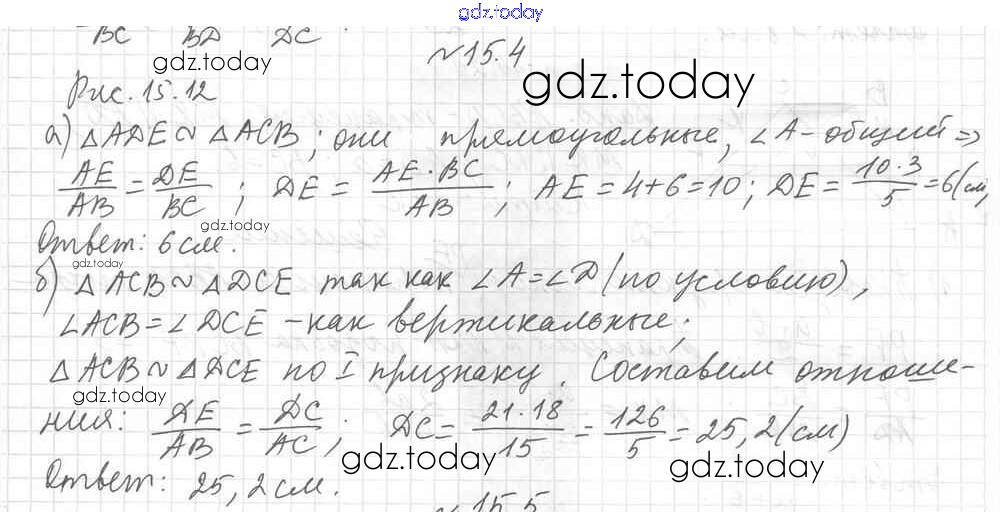 gdz.today
BC BD DC .
№ 15.4.
gdz.today
gdz.today
Рис. 15.12
а) △ADE ~ △ACB ; они прямоугольные, ∠A - общий ⇒
AE/AB = DE/BC ; DE = AE · BC/AB ; AE = 4+6 = 10 ; DE = 10 · 3/5 = 6 (см,
gdz.today
Ответ: 6 см.
gdz.today
б) △ ACB ~ △DCE так как ∠A = ∠D (по условию) ,
∠ACB = ∠DCE - как вертикальные;
△ ACB ~ △DCE по I признаку. Составим отноше-
gdz.today
ния: DE/AB = DC/AC ; DC = 21 · 18/15 = 126/5 = 25,2 (см)
gdz.today
gdz.today
Ответ: 25,2 см.
№ 15.5